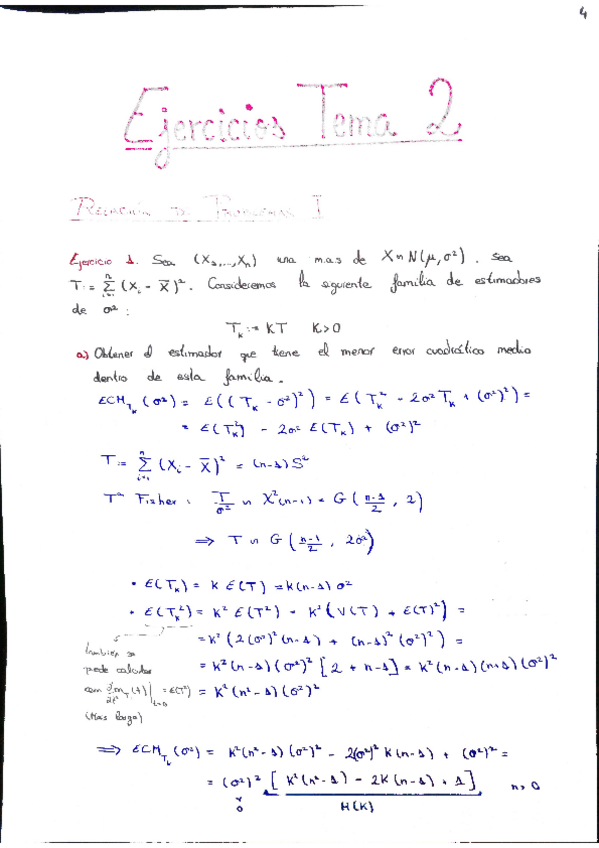 4
Ejercicios Tema 2
Relación de Problemas I
Ejercicio 1. Sea (X₁,...,Xₙ) una m.a.s de X ~ N(μ, σ²). Sea
T := Σᵢ₌₁ⁿ (Xᵢ - X̄)². Consideremos la siguiente familia de estimadores
de σ²:
T_K := KT K>0
a) Obtener el estimador que tiene el menor error cuadrático medio
dentro de esta familia.
ECM_{T_K}(σ²) = E((T_K - σ²)²) = E(T_K² - 2σ²T_K + (σ²)²) =
= E(T_K²) - 2σ² E(T_K) + (σ²)²
T := Σᵢ₌₁ⁿ (Xᵢ - X̄)² = (n-1)S²
Tª Fisher: T/σ² ~ χ²(n-1) = G((n-1)/2, 2)
⇒ T ~ G((n-1)/2, 2σ²)
• E(T_K) = K E(T) = K(n-1)σ²
• E(T_K²) = K² E(T²) = K² (V(T) + E(T)²) =
= K² (2(σ²)²(n-1) + (n-1)²(σ²)²) =
= K²(n-1)(σ²)² [2 + n-1] = K²(n-1)(n+1)(σ²)²
= K²(n²-1)(σ²)²
también se
puede calcular
con ∂²m_T(t)/∂t² |_{t=0} = E(T²)
(Más largo)
⇒ ECM_{T_K}(σ²) = K²(n²-1)(σ²)² - 2(σ²)² K(n-1) + (σ²)² =
= (σ²)² [K²(n²-1) - 2K(n-1) + 1] n>0
v
0
H(K)